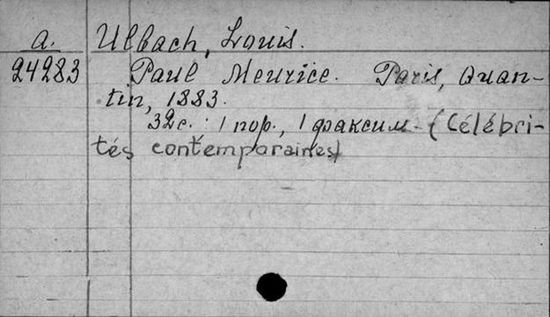 a. Ulbach, Louis.
24283 Paul Meurice. Paris, Quan-
tin, 1883.
32с. 1 пор., 1 факсим. (Célébri-
tés contemporaines)